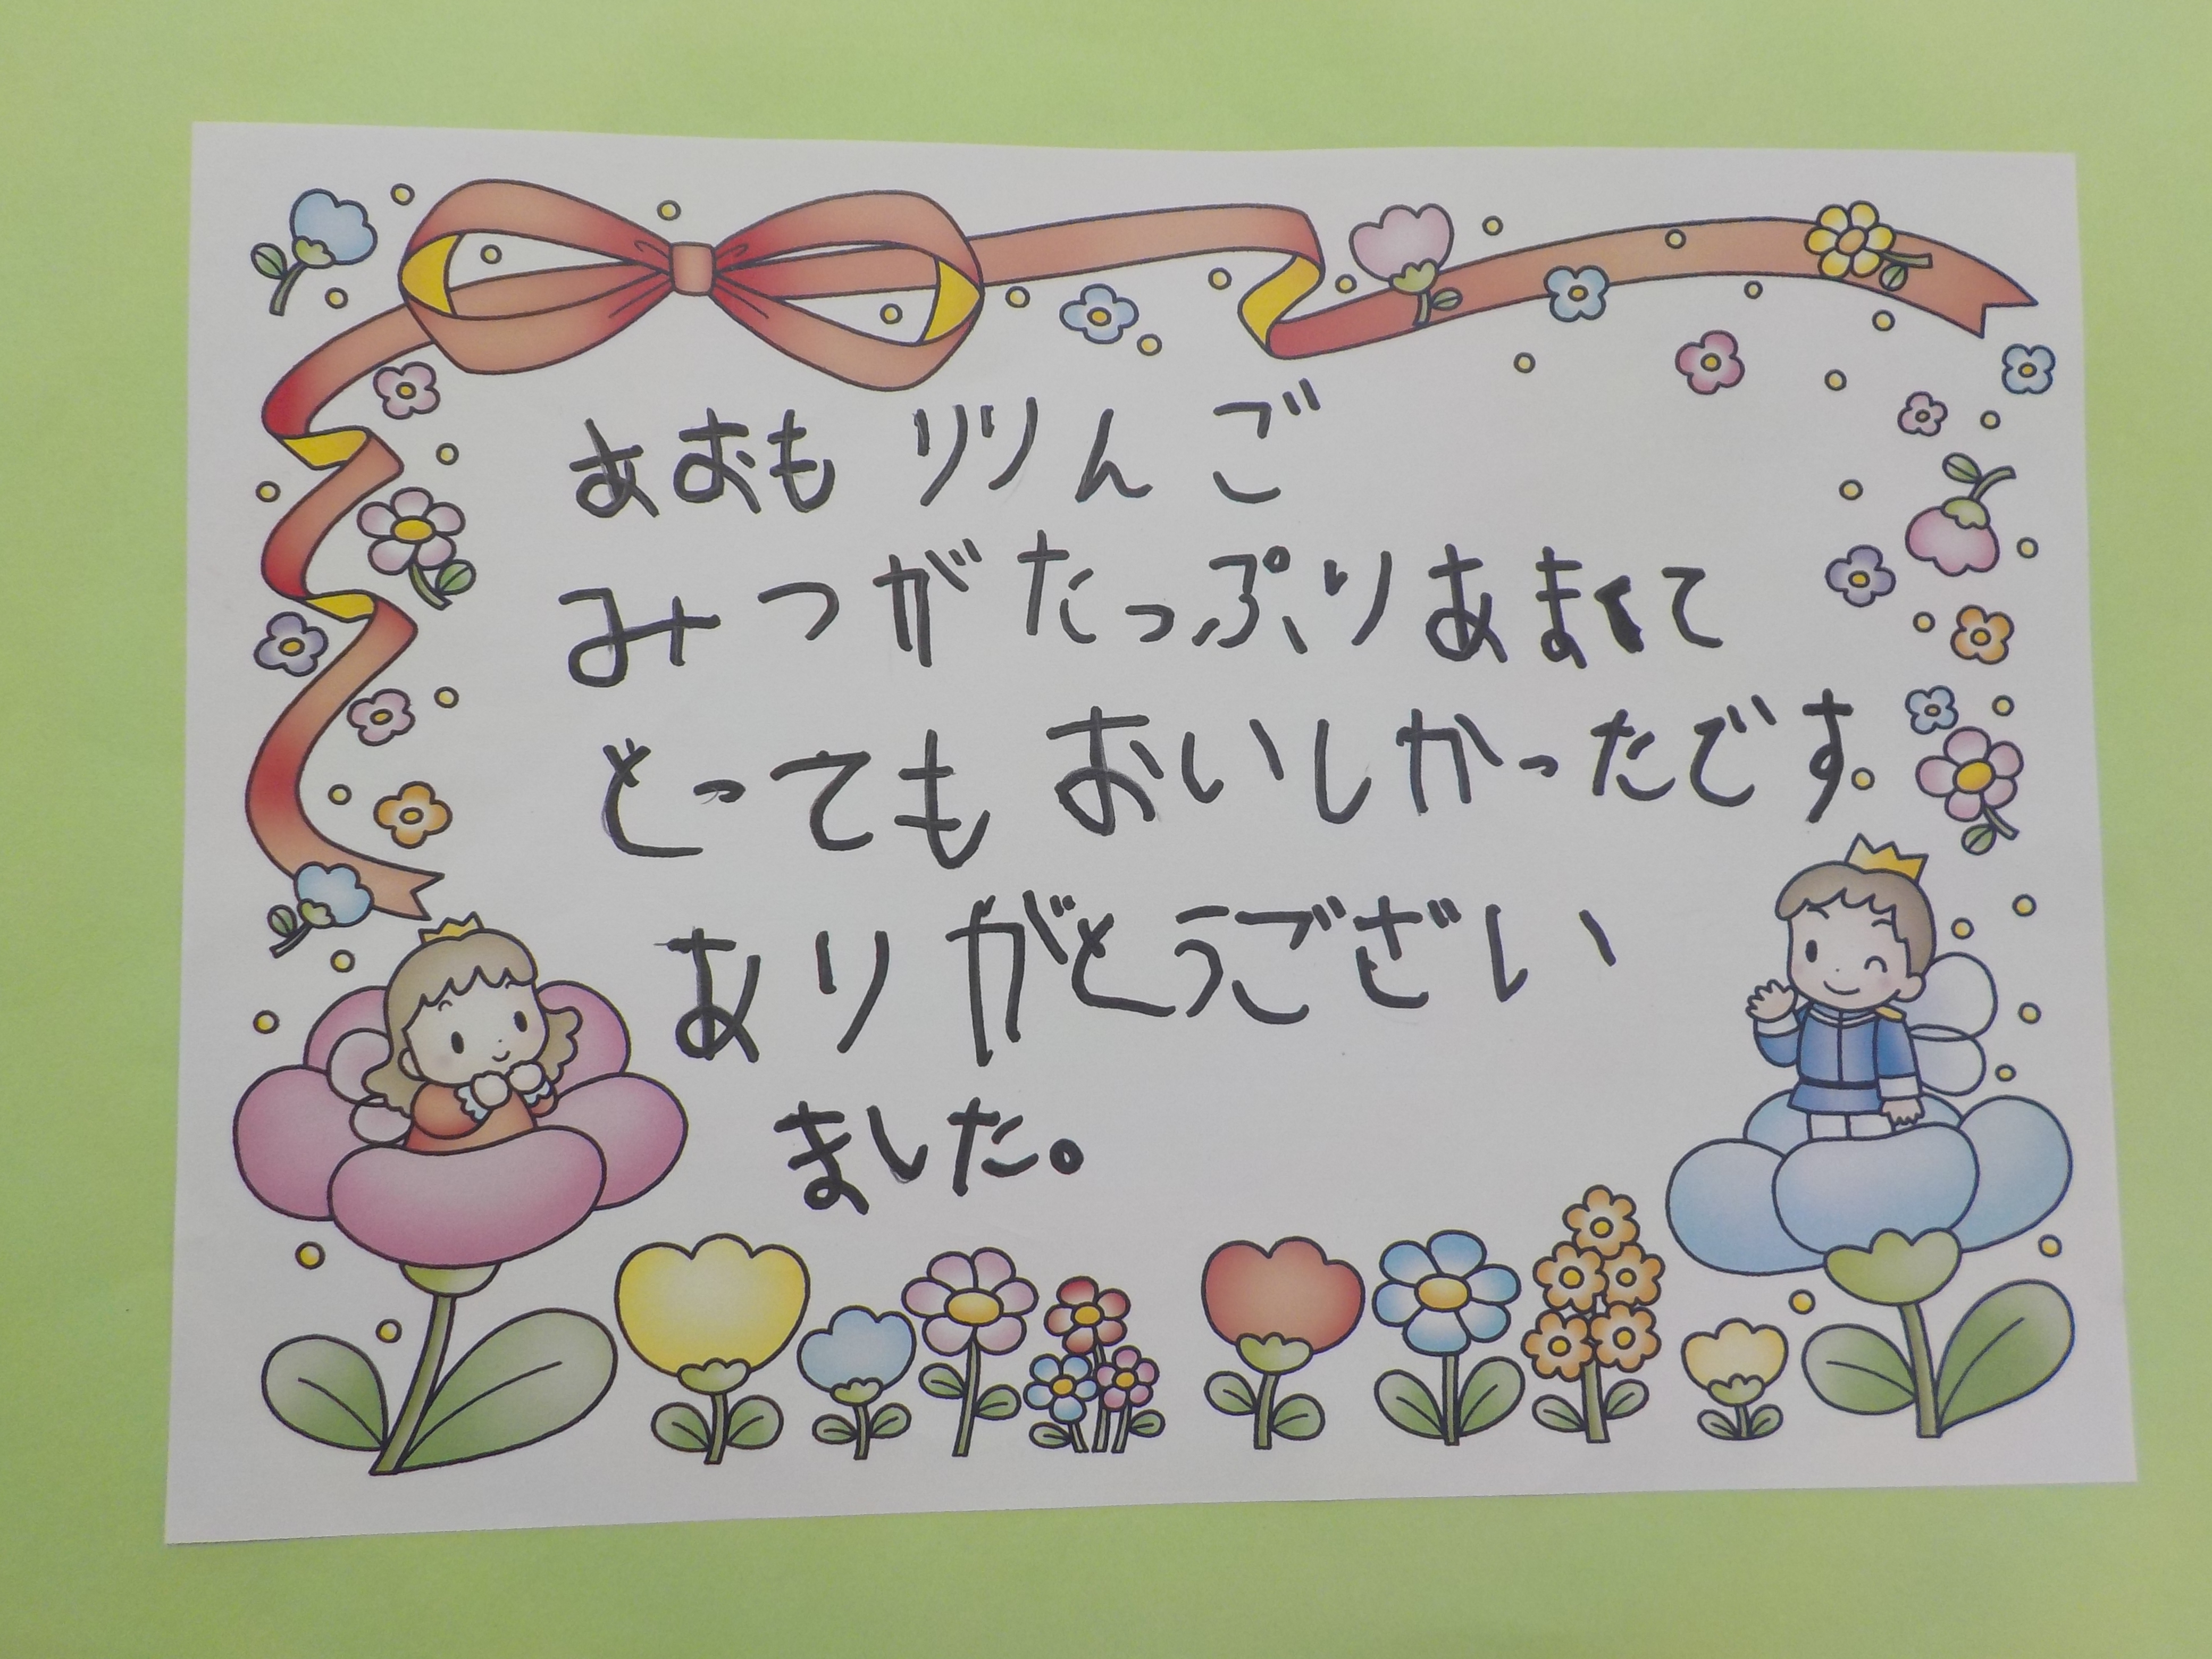 あおもりりんご
みつがたっぷりあまくて
とってもおいしかったです
ありがとうござい
ました。